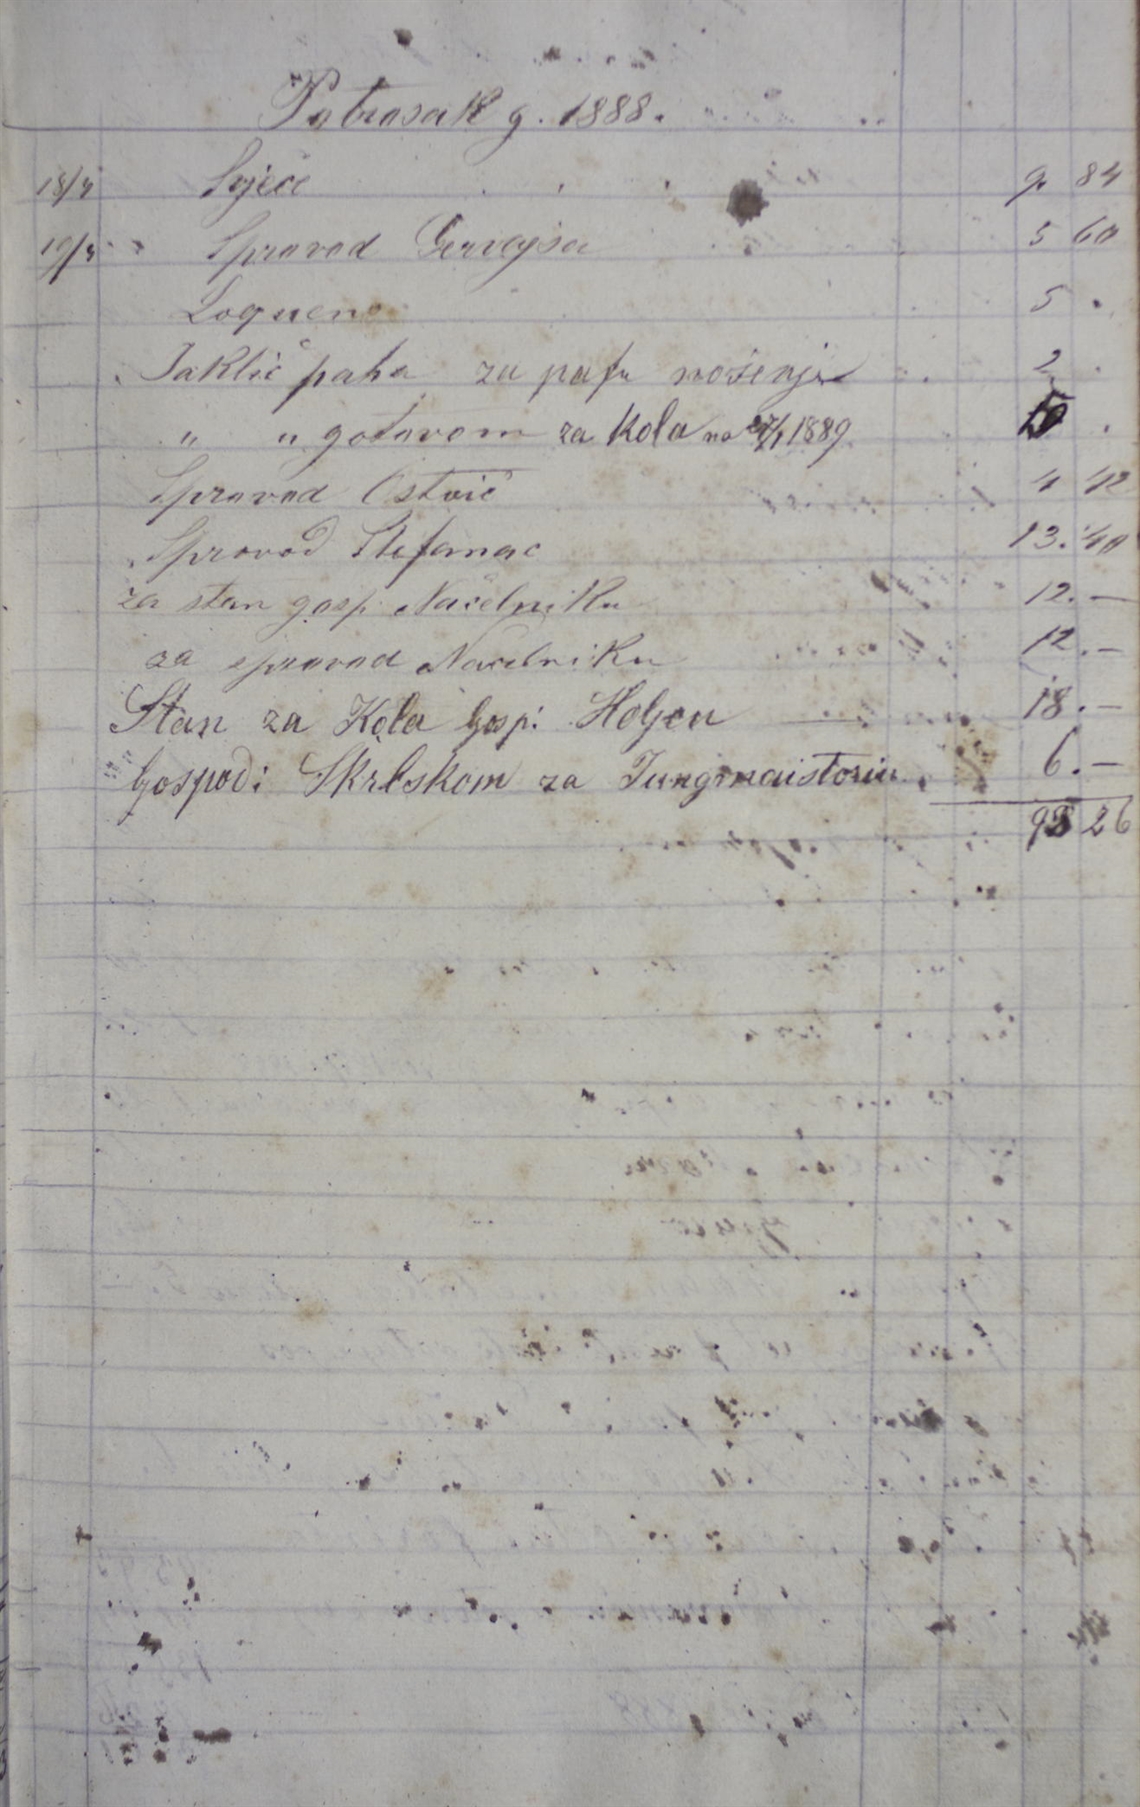 Potrosak g. 1888.
18/4 Svjeće 9 84
19/4 Sprovod Gervajsa 5 60
Loquenc 5 .
Jaklić paha za pafu nošenje 2 .
" " gotovom za Kola na 1889 .
Sprovod Ostoić 4 42
Sprovod Stefanac 13.40
za stan gosp. Načelniku 12.—
za sprovod Načelniku 12.—
Stan za Kola Gosp: Holjcu 18.—
Gospodi Skrbskom za Tungmaistoriu. 6.—
93 26